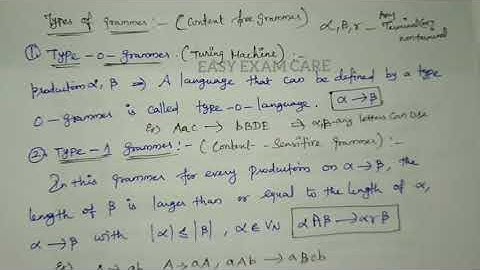 Types of grammes :- (Content free grammes) α, β, r - Any Terminal (or) nonterminal
① Type - 0 - grammes. (Turing Machine) :-
EASY EXAM CARE
production α, β ⇒ A language that can be defined by a type
0 - grammes is called type - 0 - language. α → β
Ex) Aac → bBDE ⇒ α, β - any letters can use
② Type - 1 grammes :- (Content - Sensitive grammes) :-
In this grammes for every productions on α → β, the
length of β is larger than or equal to the length of α,
α → β with |α| ≤ |β| , α ∈ VN αAβ → αrβ
A → aA, aAb → aBcb